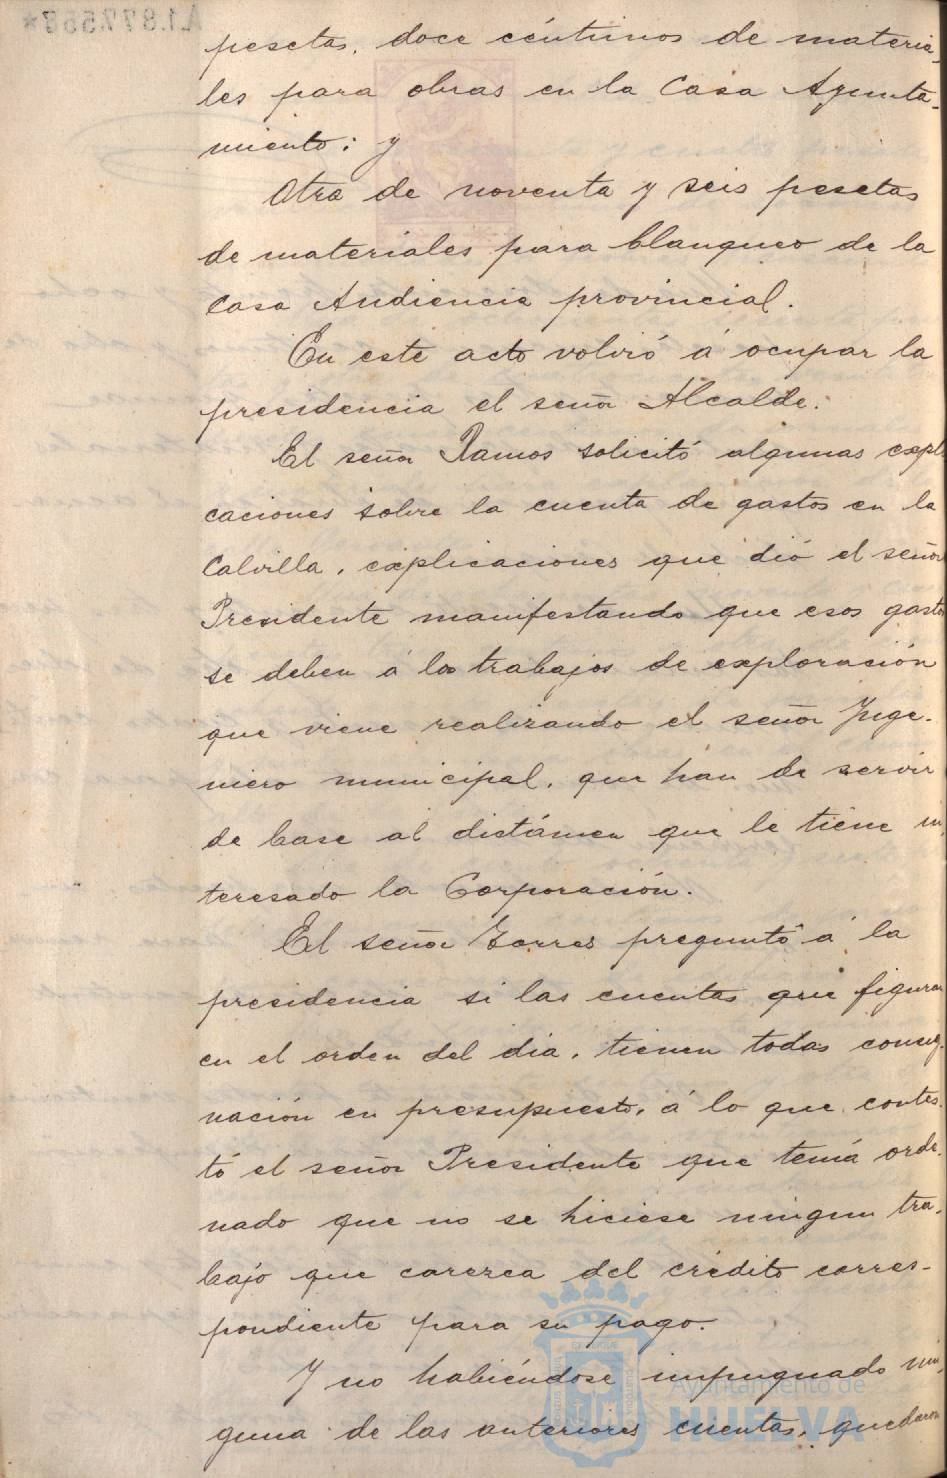 pesetas, doce céntimos de materia-
les para obras en la Casa Ayunta-
miento; y
Otra de noventa y seis pesetas
de materiales para blanqueo de la
Casa Audiencia provincial.
En este acto volvió á ocupar la
presidencia el señor Alcalde.
El señor Ramos solicitó algunas expli
caciones sobre la cuenta de gastos en la
Calvilla, explicaciones que dió el señor
Presidente manifestando que esos gastos
se deben á los trabajos de exploración
que viene realizando el señor Inge-
niero municipal, que han de servir
de base al distámen que le tiene in
teresado la Corporación.
El señor Torres preguntó á la
presidencia si las cuentas que figuran
en el orden del dia, tienen todas consig-
nación en presupuesto, á lo que contes-
tó el señor Presidente que tenía orde-
nado que no se hiciese ningun tra-
bajo que carezca del crédito corres-
pondiente para su pago.
Y no habiéndose impugnado nin-
guna de las anteriores cuentas, quedaron
Ayuntamiento de
HUELVA